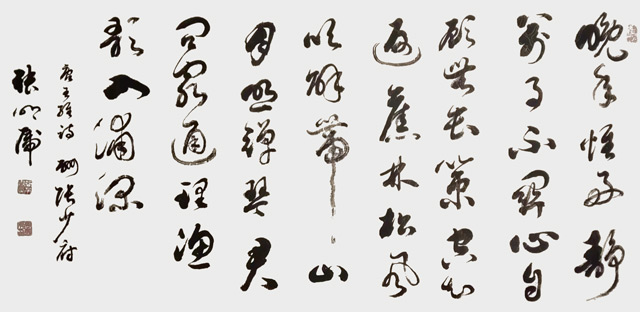 晚年惟好靜
萬事不關心自
顧無長策空知
返舊林松風
吹解帶山
月照彈琴君
問窮通理漁
歌入浦深
唐王維詩 酬張少府
張